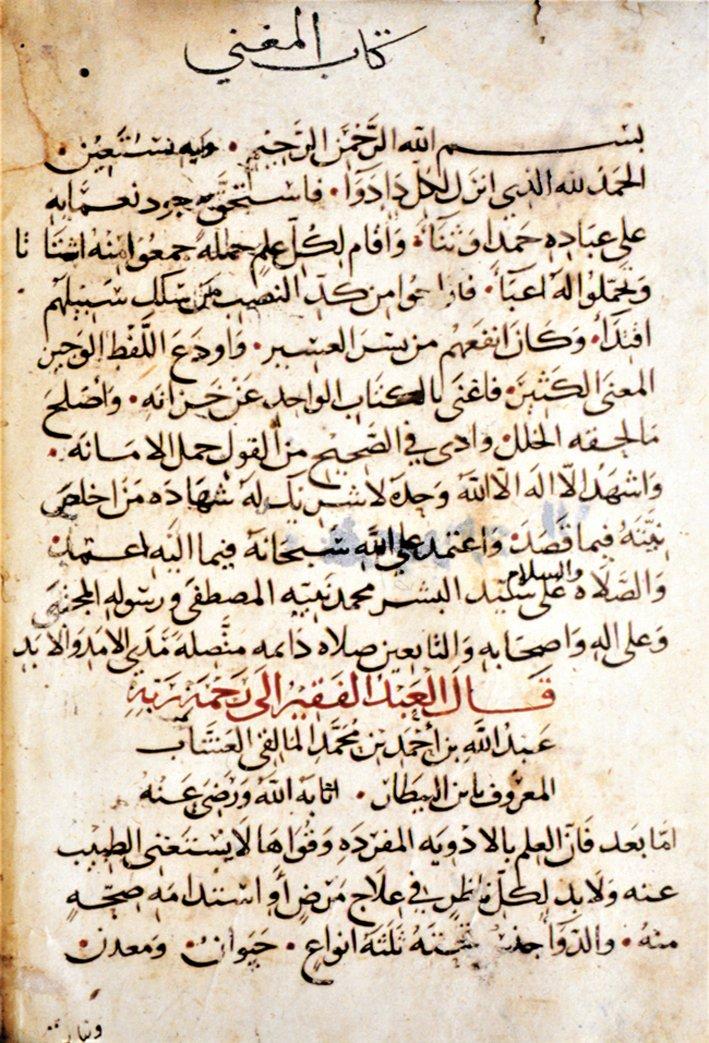 كتاب المغني
بسم الله الرحمن الرحيم وبه نستعين
الحمد لله الذي انزل لكل داء دوآء فاستحق بوجود نعمايه
على عباده حمدا وثناء واقام لكل علم حملة جمعوا منه اشتاتا
وتحملوا له اعبآء فاراحوا من كد النصب من سلك سبيلهم
اقتدآء وكان انفعهم من يسر العسير واودع اللفظ الوجيز
المعنى الكثير فاغنى بالكتاب الواحد عن خزانه واصلح
ما لحقه الخلل وادى في الصحيح من القول حمل الامانه
واشهد الا اله الا الله وحده لا شريك له شهاده من اخلص
نيته فيما قصد واعتمد على الله سبحانه فيما اليه اعتمد
والصلاه والسلام على سيد البشر محمد نبيه المصطفى ورسوله المجتبى
وعلى اله واصحابه والتابعين صلاه دايمه متصله مدى الامد والابد
قال العبد الفقير الى رحمة ربه
عبد الله بن احمد بن محمد المالقي العشاب
المعروف بابن البيطار اثابه الله ورضي عنه
اما بعد فان العلم بالادويه المفرده وقواها لا يستغني الطبيب
عنه ولا بد لكل ناظر في علاج مرض أو استدامه صحه
منه والدوآ ثلثه انواع حيوان ومعدن
ونبات